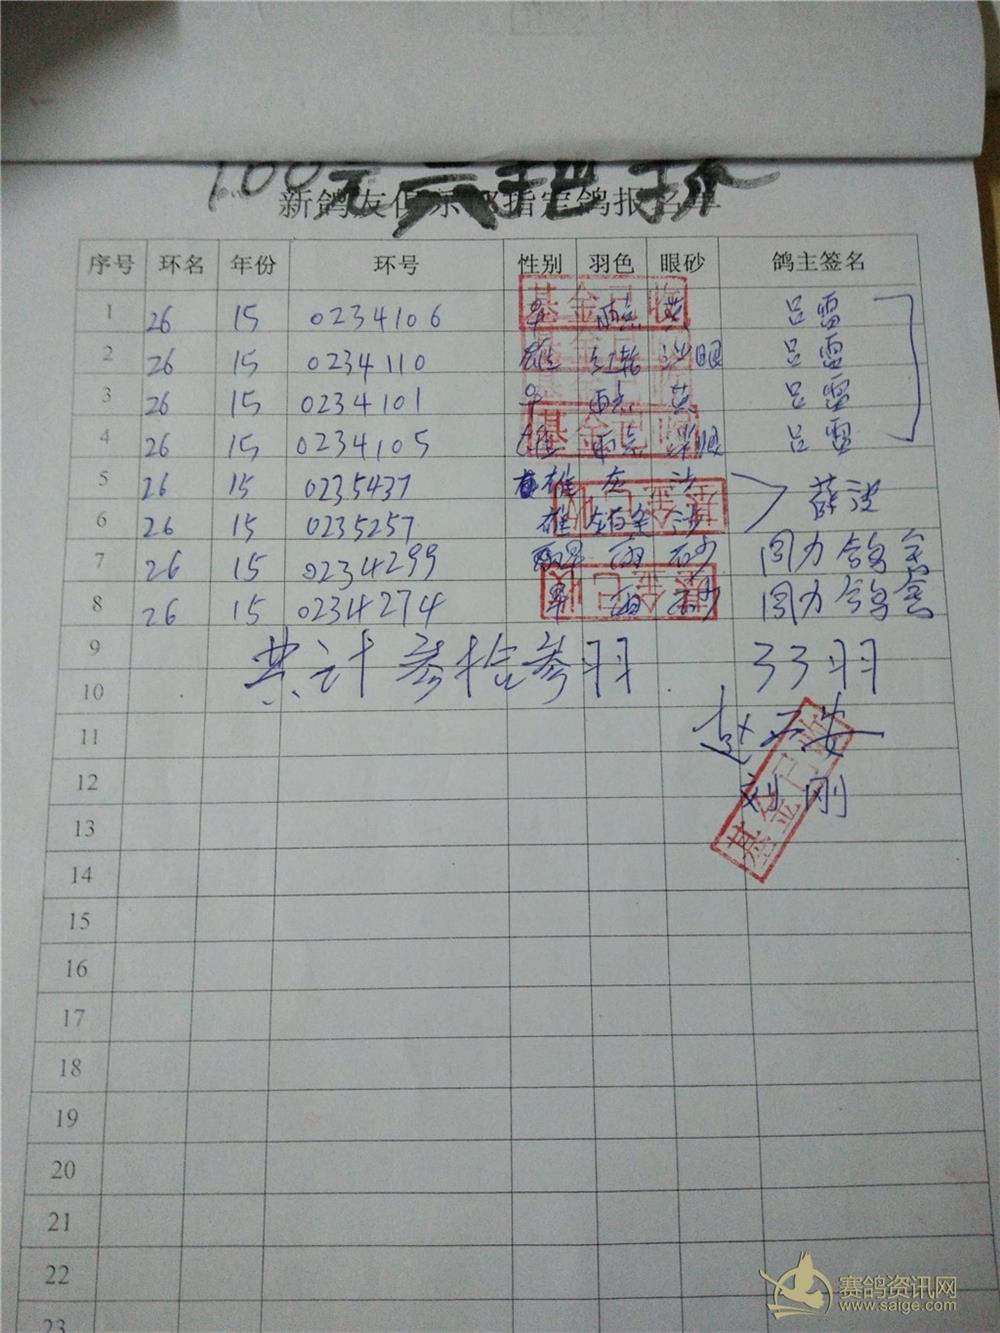 100元三把抓
新鸽友俱乐部指定鸽报名单
序号 环名 年份 环号 性别 羽色 眼砂 鸽主签名
1 26 15 0234106 雨点 黄 吕雷
2 26 15 0234110 雄 红轮 沙眼 吕雷
3 26 15 0234101 雨点 黄 吕雷
4 26 15 0234105 雄 雨点 吕雷
5 26 15 0235437 雄 灰 沙
6 26 15 0235257 雄 沙 薛波
7 26 15 0234299 雨 砂 同力鸽舍
8 26 15 0234274 雨 砂 同力鸽舍
9
共计叁拾叁羽 33羽
10
11 赵
12 刘刚
13
14
15
16
17
18
19
20
21
22
23
基金已收
基金已收
基金已收
基金已收
基金已收
基金已收
赛鸽资讯网
www.saige.com